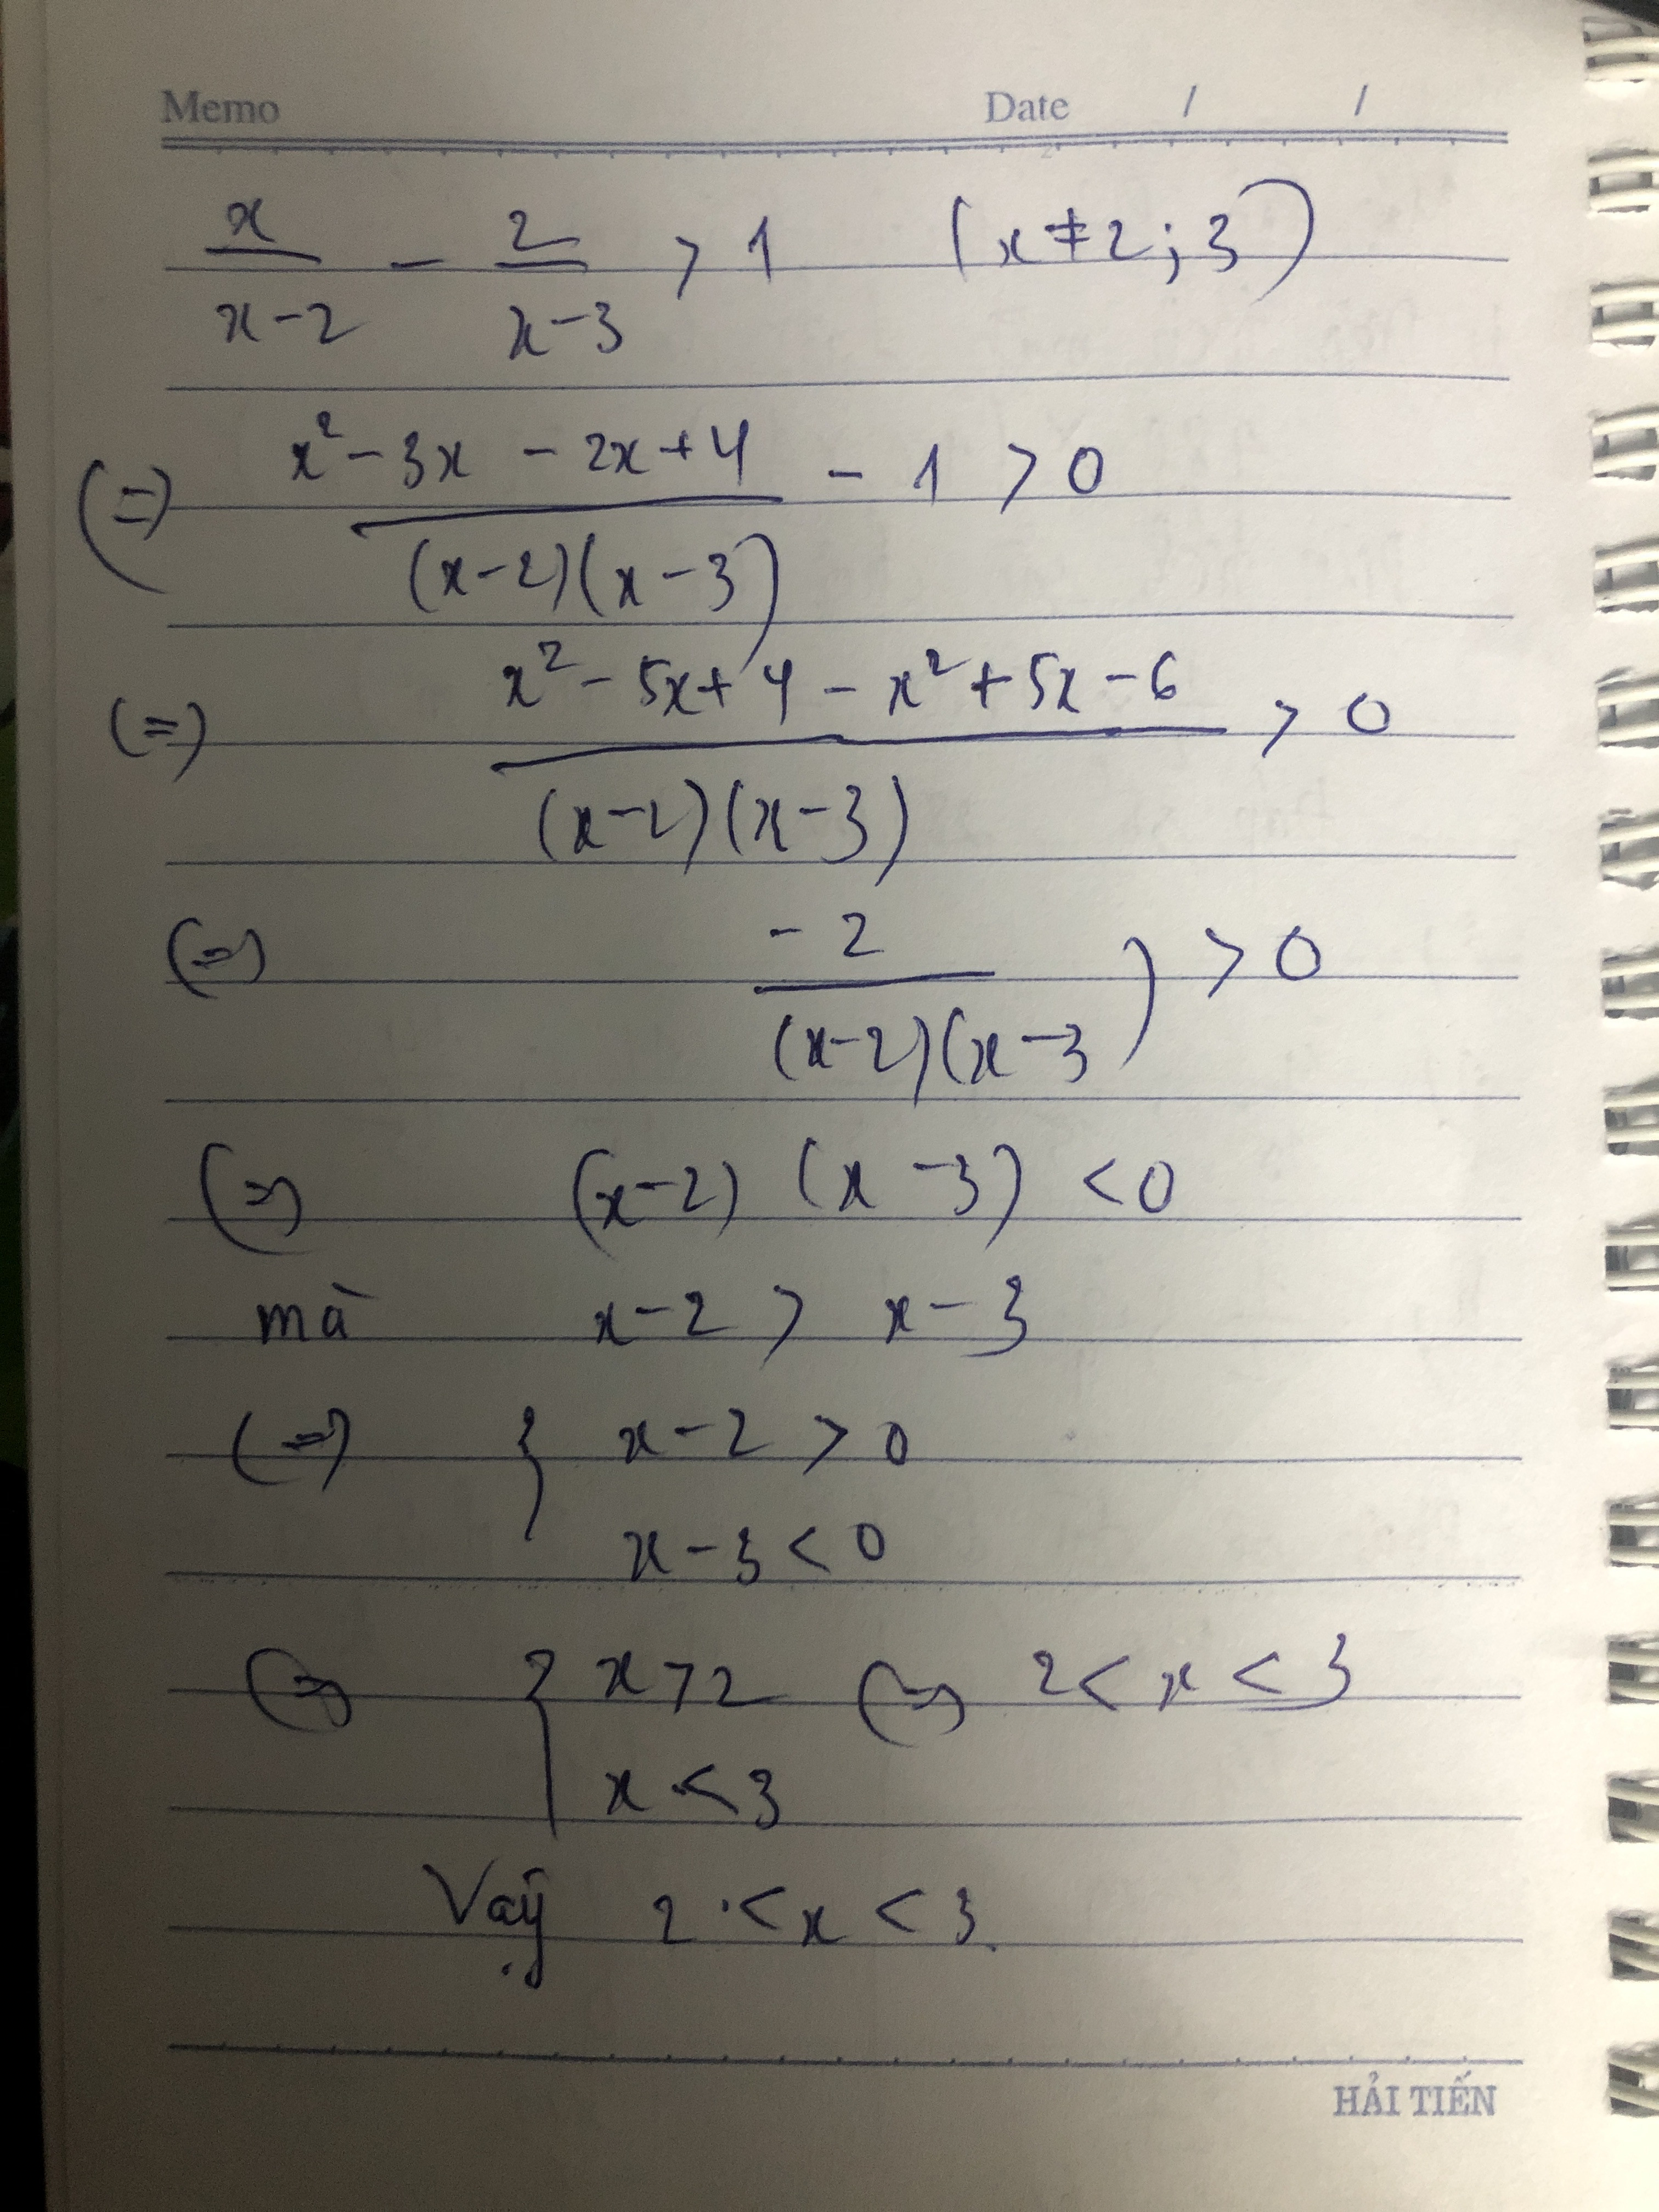 Memo Date / /
x/(x-2) - 2/(x-3) > 1 (x ≠ 2; 3)
(=) (x² - 3x - 2x + 4)/((x-2)(x-3)) - 1 > 0
(=) (x² - 5x + 4 - x² + 5x - 6)/((x-2)(x-3)) > 0
(=) -2/((x-2)(x-3)) > 0
(=) (x-2) (x-3) < 0
mà x-2 > x-3
(=) { x-2 > 0
x-3 < 0
(=) { x > 2 (=) 2 < x < 3
x < 3
Vậy 2 < x < 3.
HẢI TIẾN